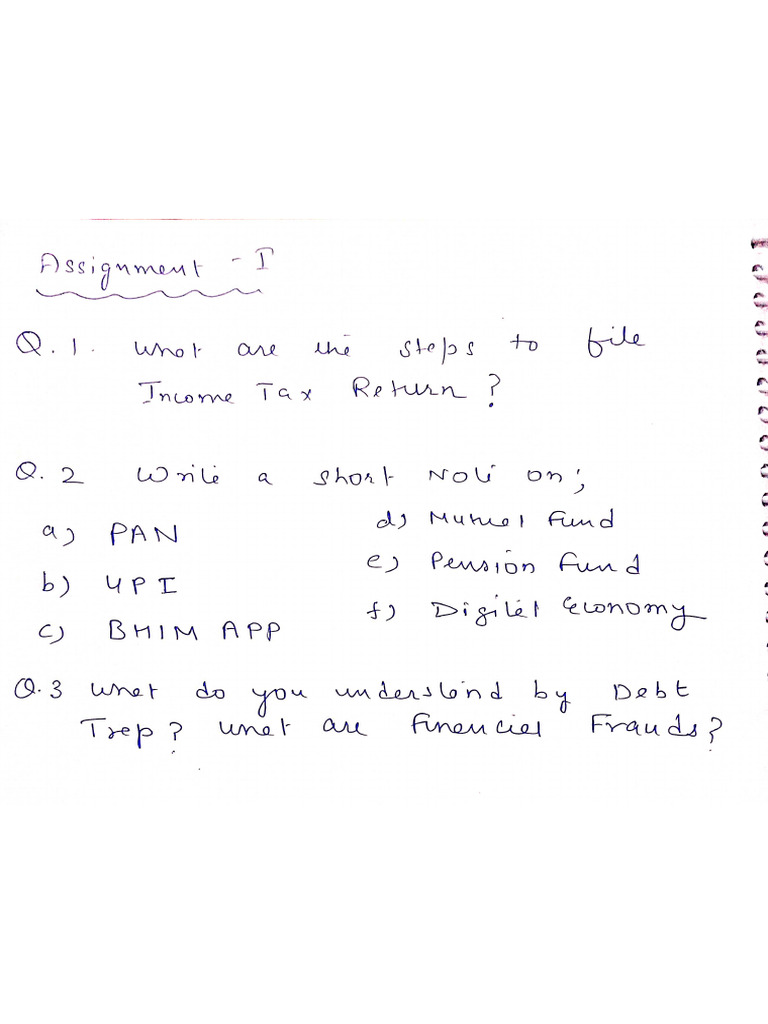 Assignment - I
Q.1. What are the steps to file
Income Tax Return?
Q.2 Write a short Note on;
a) PAN
b) UPI
c) BHIM APP
d) Mutual Fund
e) Pension Fund
f) Digital Economy
Q.3 What do you understand by Debt
Trap? What are Financial Frauds?